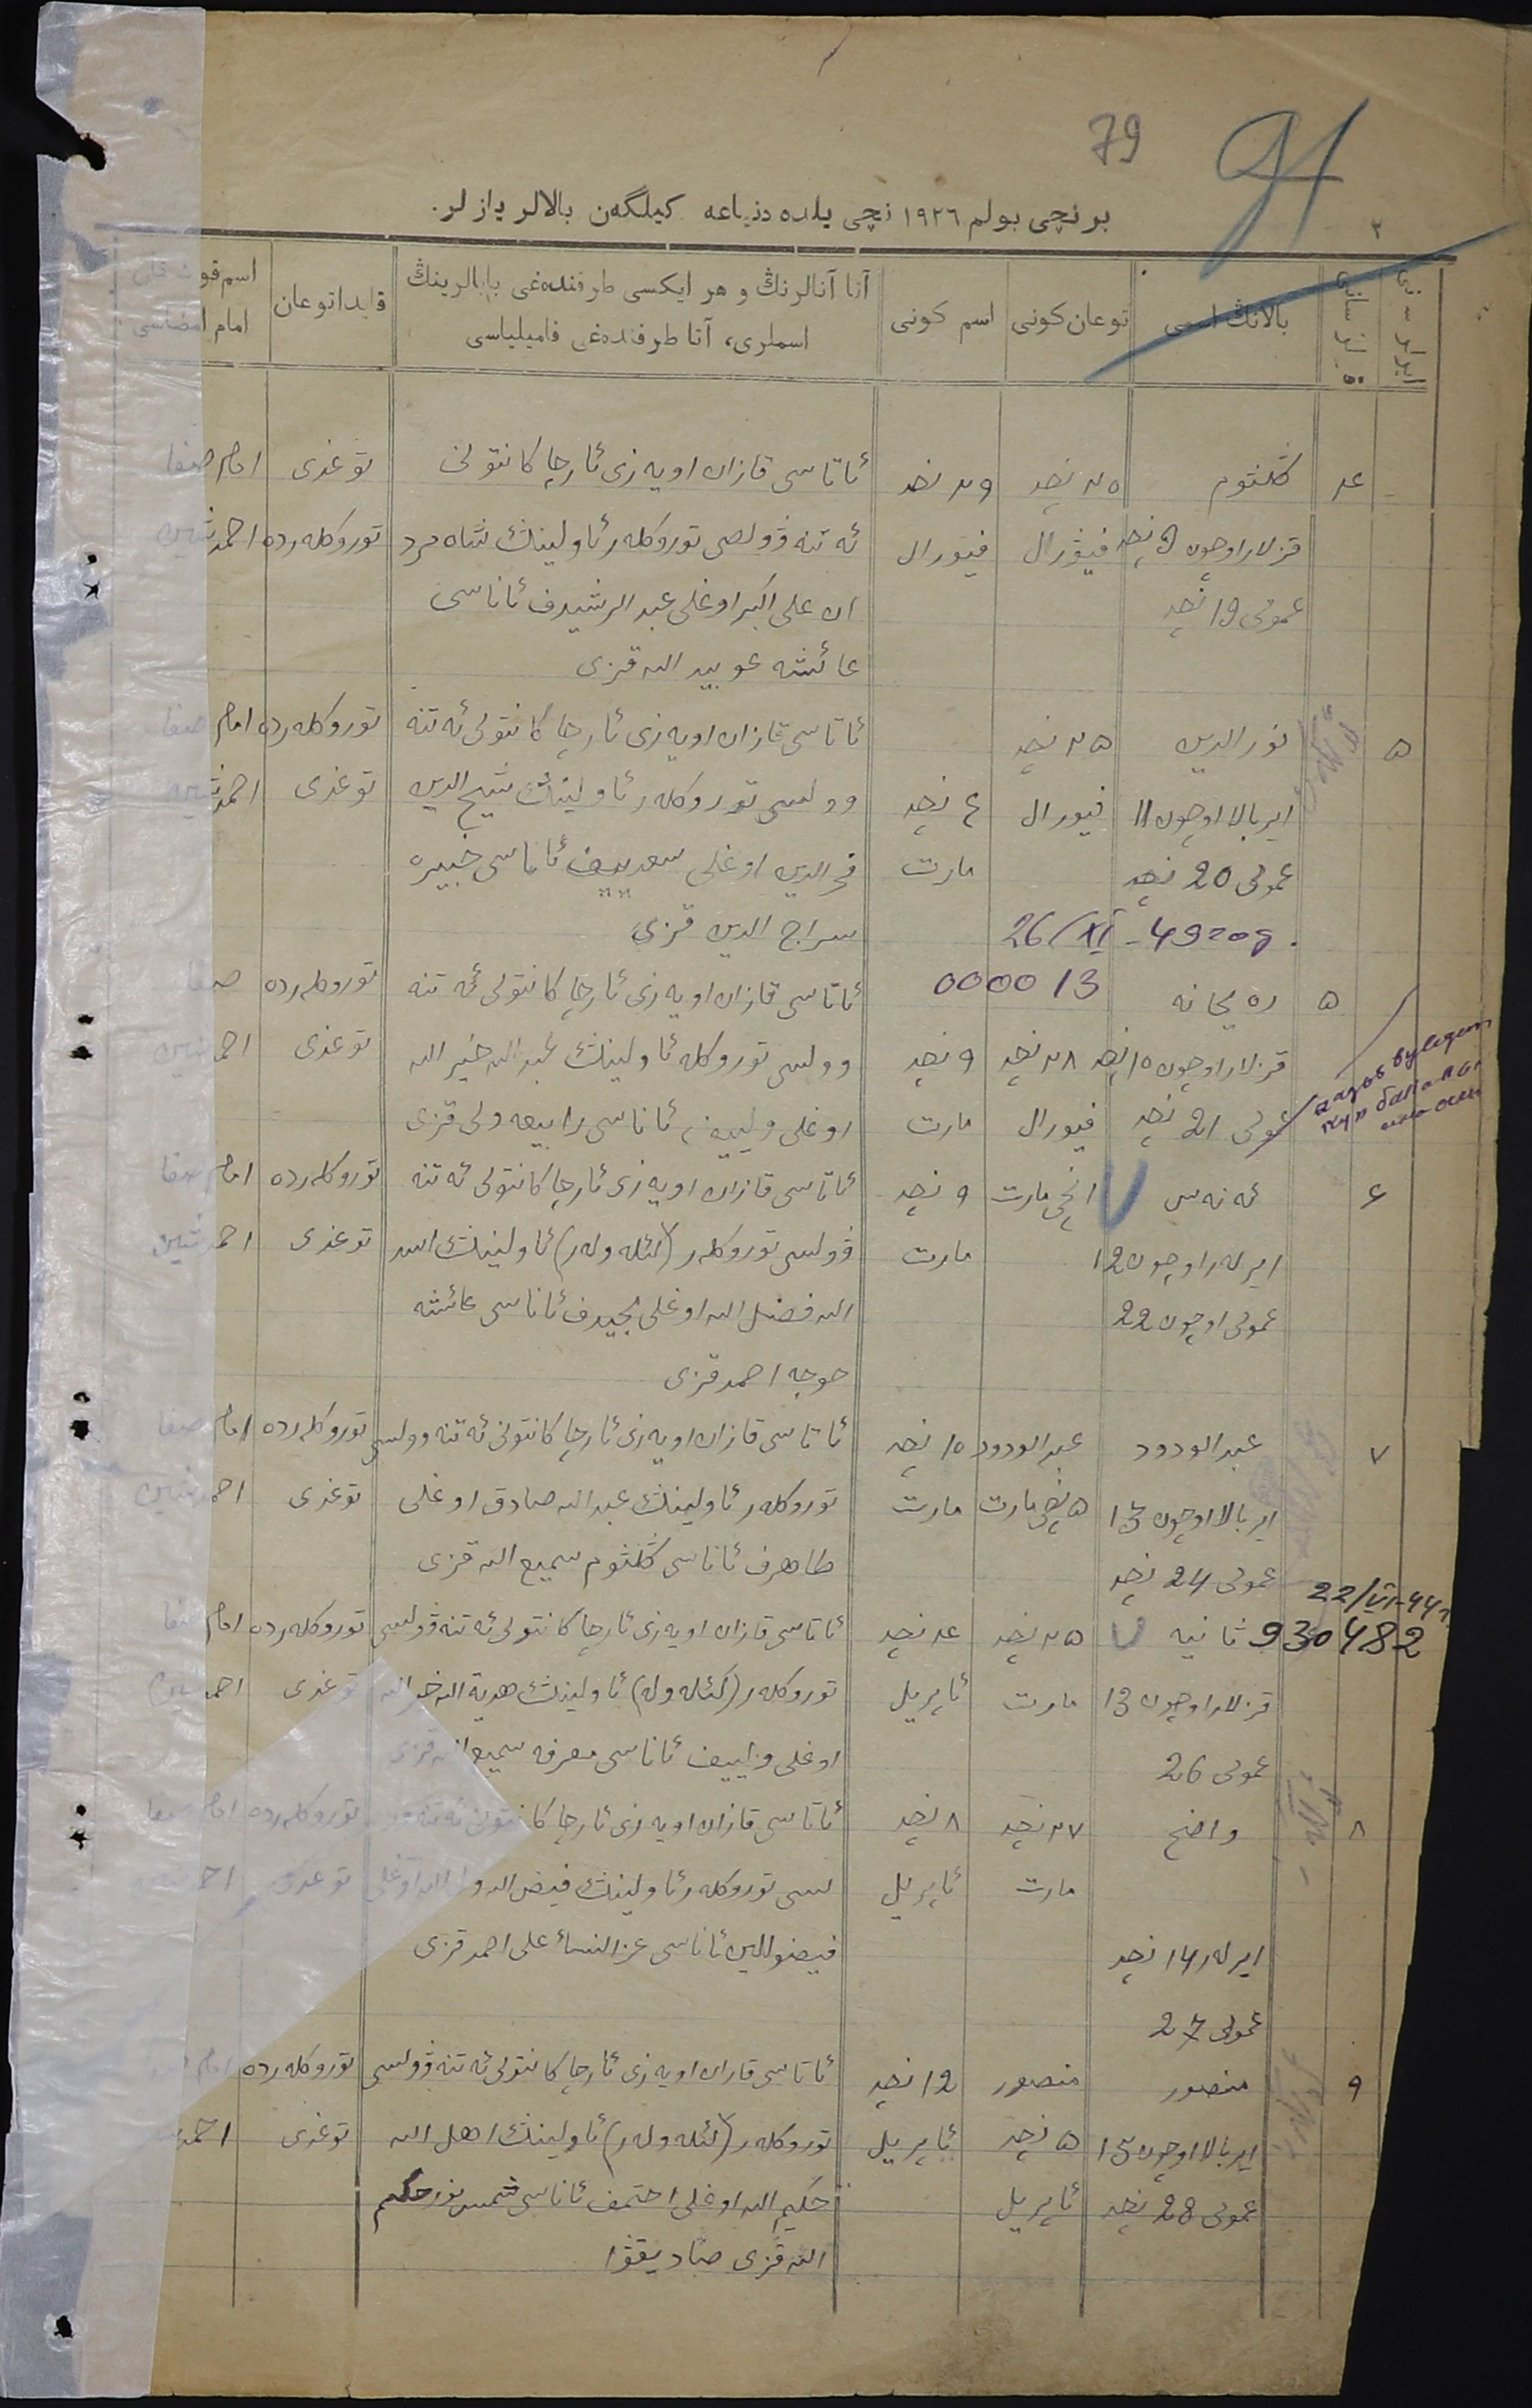 79
91
برنچی بولم ١٩٢٦ نچی یلده دنیاعه کیلگەن بالالر یازلر.
٢
بالانڭ اسمی
توعان کونی
اسم کونی
آتا آنالرنڭ و هر ایکسی طرفندەغی بابالرینڭ
اسملری، آتا طرفندەغی فامیلیاسی
قایدا توعان
اسم قوشقان
امام امضاسی
٤
گلثوم
قزلار اوچون 9 نچی
عمومی 19 نچی
٢٥ نچی
فیۋرال
٢٩ نچی
فیورال
ئاتاسی قازان اویەزی ئارچا کانتونی
ئەتنە ۋولصی توروکلەر ئاولینڭ شاه مرد
ان علی اکبر اوغلی عبد الرشیدف ئاناسی
عائشە عوبید اللە قزی
توغدی
توروکلەردە
امام صفا
احمدشین
٥
نور الدین
ایر بالا اوچون 11
عمومی 20 نچی
٢٥ نچی
فیورال
٤ نچی
مارت
ئاتاسی قازان اویەزی ئارچا کانتونی ئەتنە
وولسی توروکلەر ئاولینڭ شیخ الدین
فخر الدین اوغلی سعدییف ئاناسی خبیرە
سراج الدین قزی
توروکلەردە
توغدی
امام صفا
احمدشین
26/XI - 49 год.
000013
٥
رەیحانە
قزلار اوچون 10 نچی
عمومی 21 نچی
٢٨ نچی
فیورال
٩ نچی
مارت
ئاتاسی قازان اویەزی ئارچا کانتونی ئەتنە
وولسی توروکلە ئاولینڭ عبد اللە خیر اللە
اوغلی ولییف، ئاناسی رابیعە ولی قزی
توروکلەردە
توغدی
صفا
احمدشین
٦
ئەنەس
ایرلەر اوچون 12
عمومی اوچون 22
١ نچی مارت
٩ نچی
مارت
ئاتاسی قازان اویەزی ئارچا کانتونی ئەتنە
ۋولسی توروکلەر (کئلەولەر) ئاولینڭ اسد
اللە فضل اللە اوغلی مجیدف ئاناسی عائشە
خوجە احمد قزی
توروکلەردە
توغدی
امام صفا
احمدشین
٧
عبد الودود
ایر بالا اوچون 13
عمومی 24 نچی
عبد الودود
٥ نچی مارت
١٥ نچی
مارت
ئاتاسی قازان اویەزی ئارچا کانتونی ئەتنە وولسی
توروکلەر ئاولینڭ عبد اللە صادق اوغلی
طاهرف ئاناسی گلثوم سمیع اللە قزی
توروکلەردە
توغدی
امام صفا
احمدشین
22/VI-44г
930482
ثانیە
قزلار اوچون 13
عمومی 26
٢٥ نچی
مارت
٤ نچی
ئاپریل
ئاتاسی قازان اویەزی ئارچا کانتونی ئەتنە ۋولسی
توروکلەر (کئلەولە) ئاولینڭ هدیة اللە خیر اللە
اوغلی ولییف ئاناسی معرفە سمیع اللە قزی
توروکلەردە
توغدی
امام صفا
احمدشین
٨
واضح
ایرلەر 14 نچی
عمومی 27
٢٧ نچی
مارت
٨ نچی
ئاپریل
ئاتاسی قازان اویەزی ئارچا کانتونی ئەتنە وو
لسی توروکلەر ئاولینڭ فیض اللە ولی اللە اوغلی
فیضوللین ئاناسی عز النساء علی احمد قزی
توروکلەردە
توغدی
امام صفا
٩
منصور
ایر بالا اوچون 15
عمومی 28 نچی
منصور
٥ نچی
ئاپریل
12 نچی
ئاپریل
ئاتاسی قازان اویەزی ئارچا کانتونی ئەتنە ۋولسی
توروکلەر (کئلەولەر) ئاولینڭ اهل اللە
حکیم اللە اوغلی احتمف ئاناسی شمس نور حکیم
اللە قزی صادیقۋا
توروکلەردە
توغدی
امام
احمد